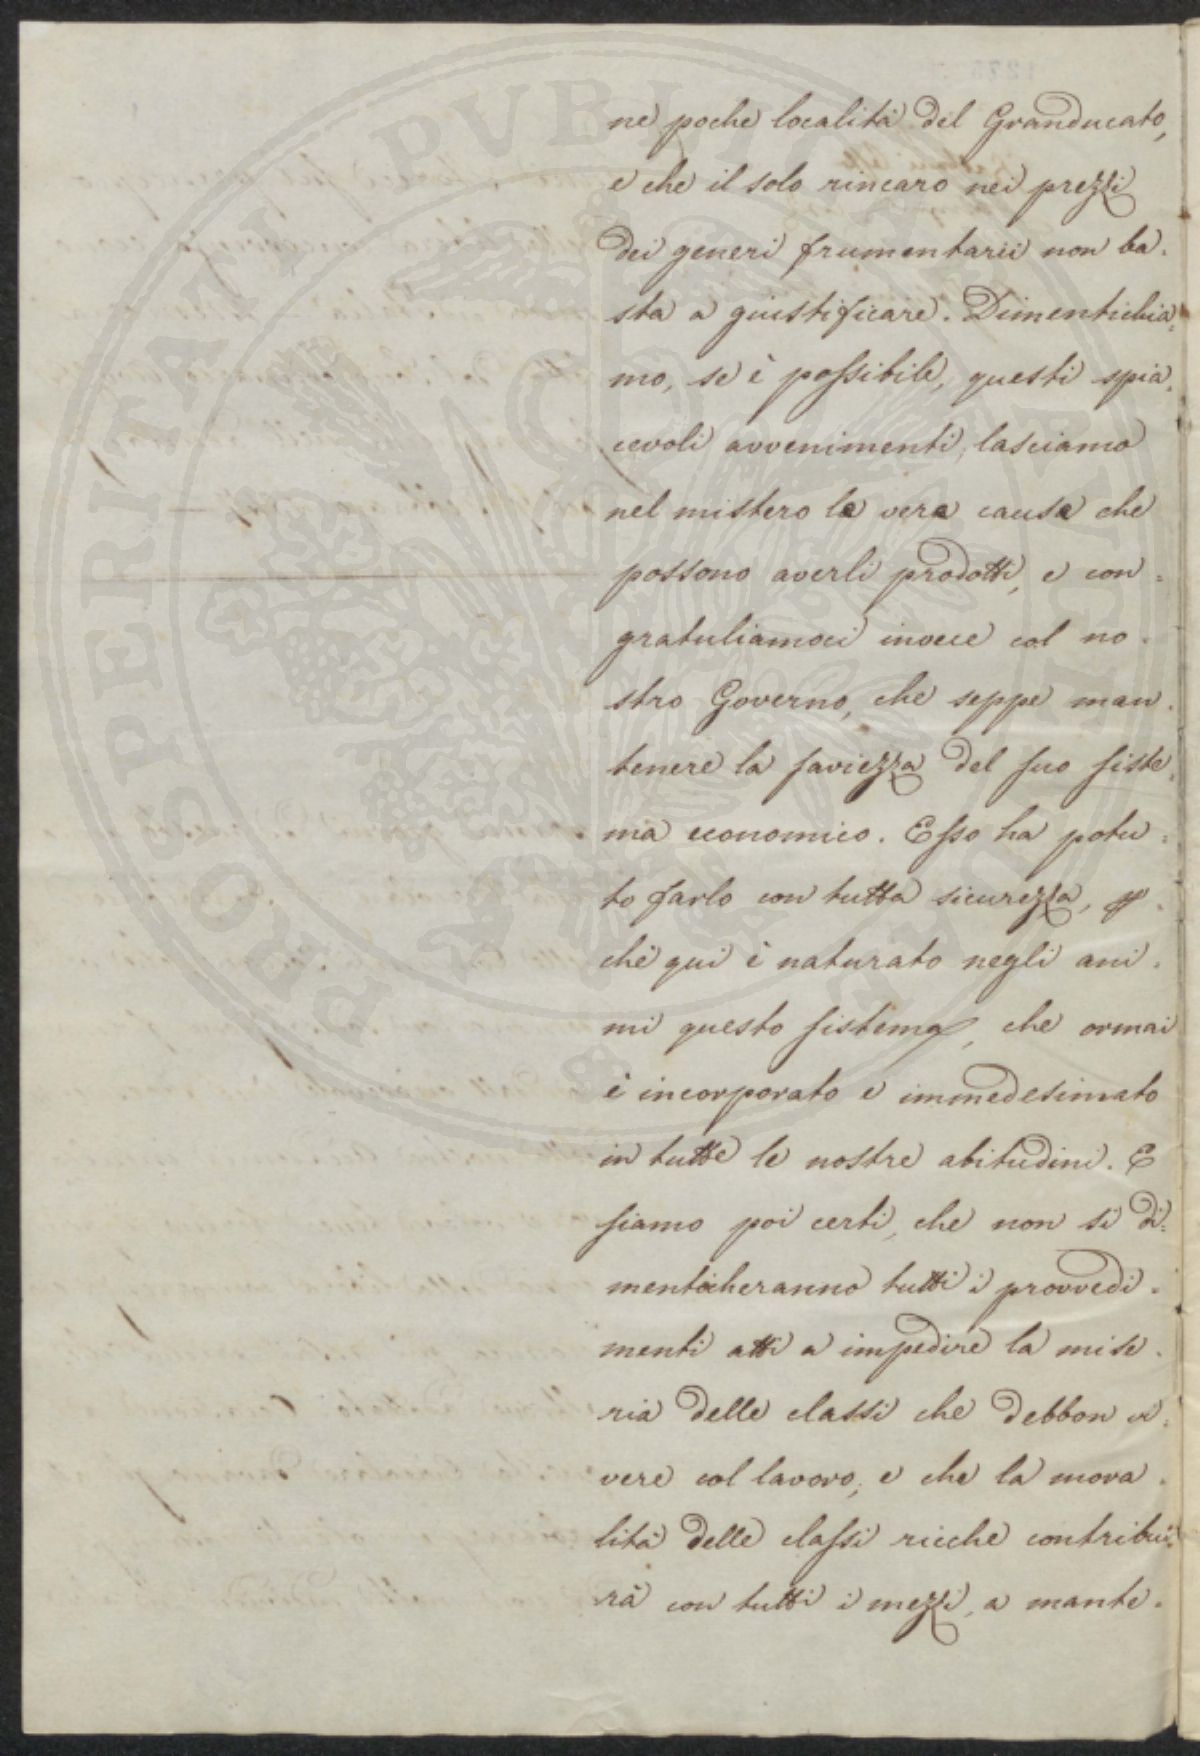 ne poche località del Granducato,
e che il solo rincaro nei prezzi
dei generi frumentarii non ba=
sta a giustificare. Dimentichia=
mo, se è possibile, questi spia=
cevoli avvenimenti, lasciamo
nel mistero le vere cause che
possono averli prodotti, e con=
gratuliamoci invece col no=
stro Governo, che seppe man=
tenere la saviezza del suo siste=
ma economico. Esso ha potu=
to farlo con tutta sicurezza, 
chè qui è naturato negli ani=
mi questo sistema, che ormai
è incorporato e immedesimato
in tutte le nostre abitudini. E
siamo poi certi, che non si di=
menticheranno tutti i provvedi=
menti atti a impedire la mise=
ria delle classi che debbon vi=
vere col lavoro; e che la mora=
lità delle classi ricche contribui=
rà con tutti i mezzi, a mante=
PROSPERITATI PUBLICAE AUGENDAE